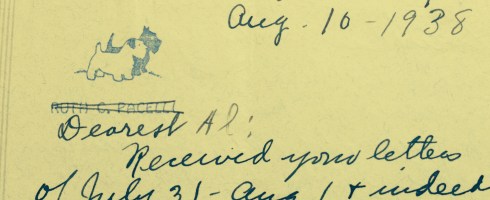 Aug. 10-1938
RUTH C. PACELLI
Dearest Al:
Received your letters
of July 31 - Aug 1 + indeed